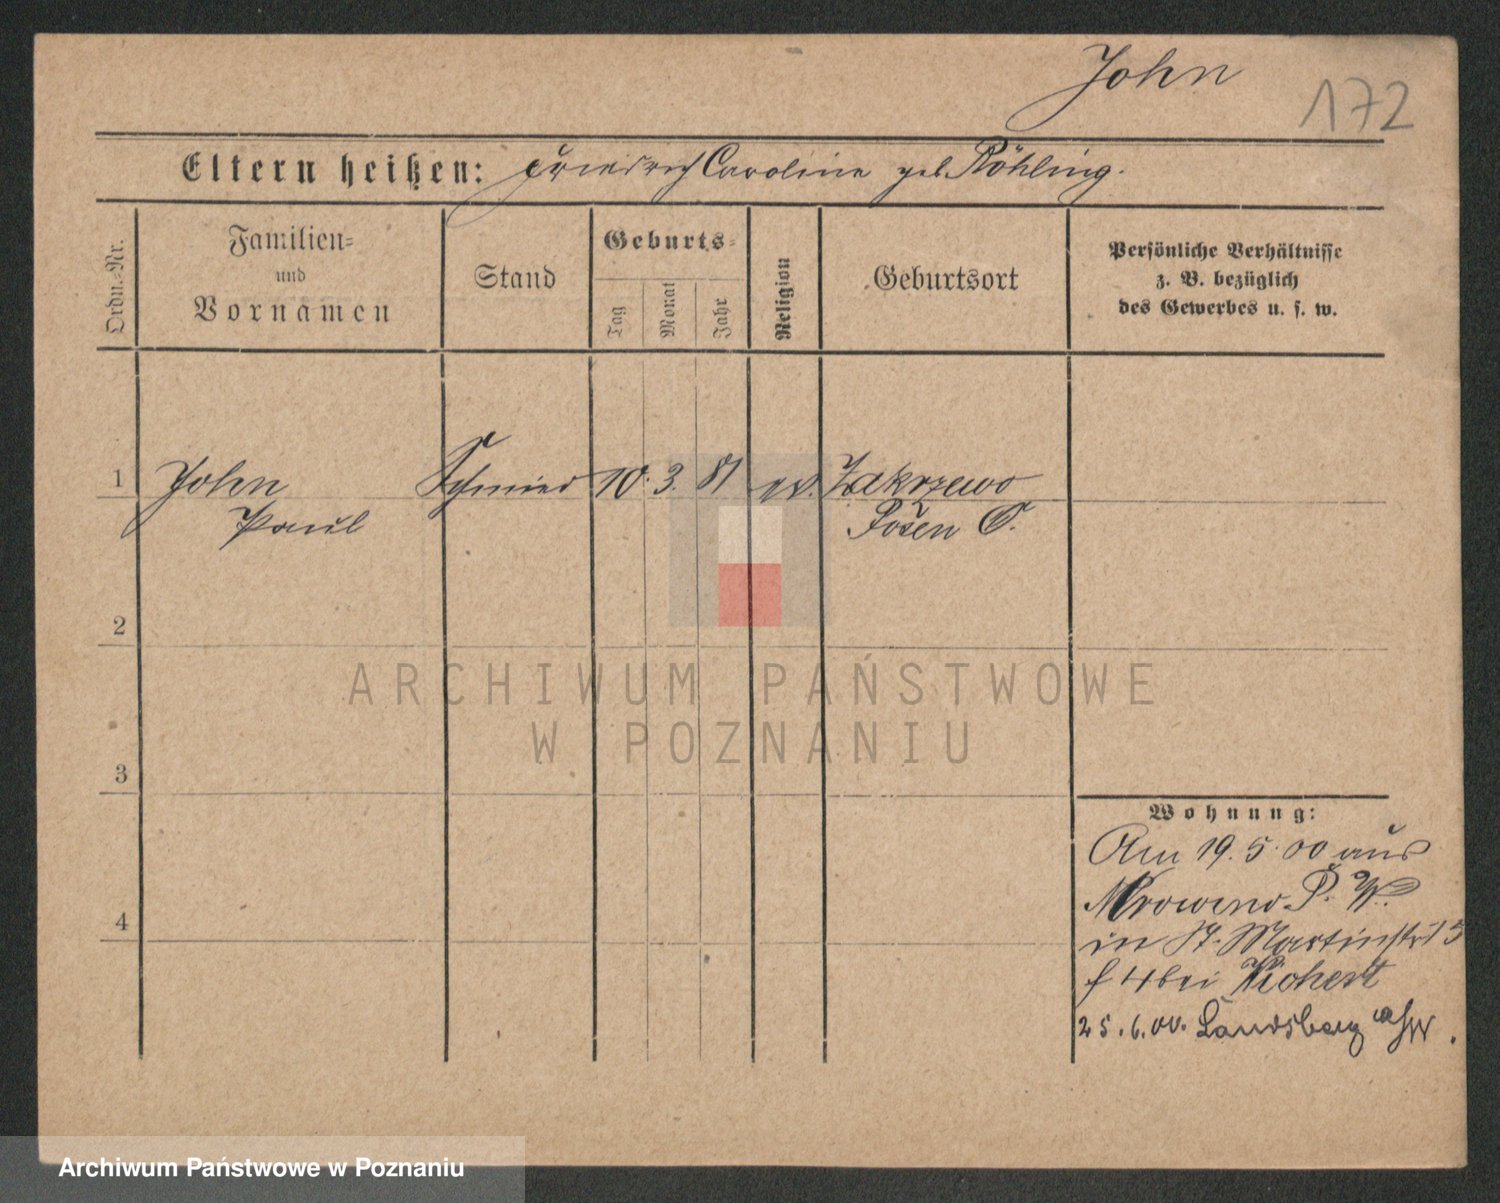 John
172
Eltern heißen: Friedrich Caroline geb. Röhling.
Ordn.-Nr.
Familien-
und
Vornamen
Stand
Geburts-
Tag
Monat
Jahr
Religion
Geburtsort
Persönliche Verhältnisse
z. B. bezüglich
des Gewerbes u. s. w.
1 John Schmied 10. 3. 81 ev. Zakrzewo
Paul Posen O.
2
3
4
Wohnung:
Am 19. 5. 00 aus
P. W.
in St. Martinstr 13
f 4 bei
25. 6. 00. Landsberg a/W.
ARCHIWUM PAŃSTWOWE
W POZNANIU
Archiwum Państwowe w Poznaniu